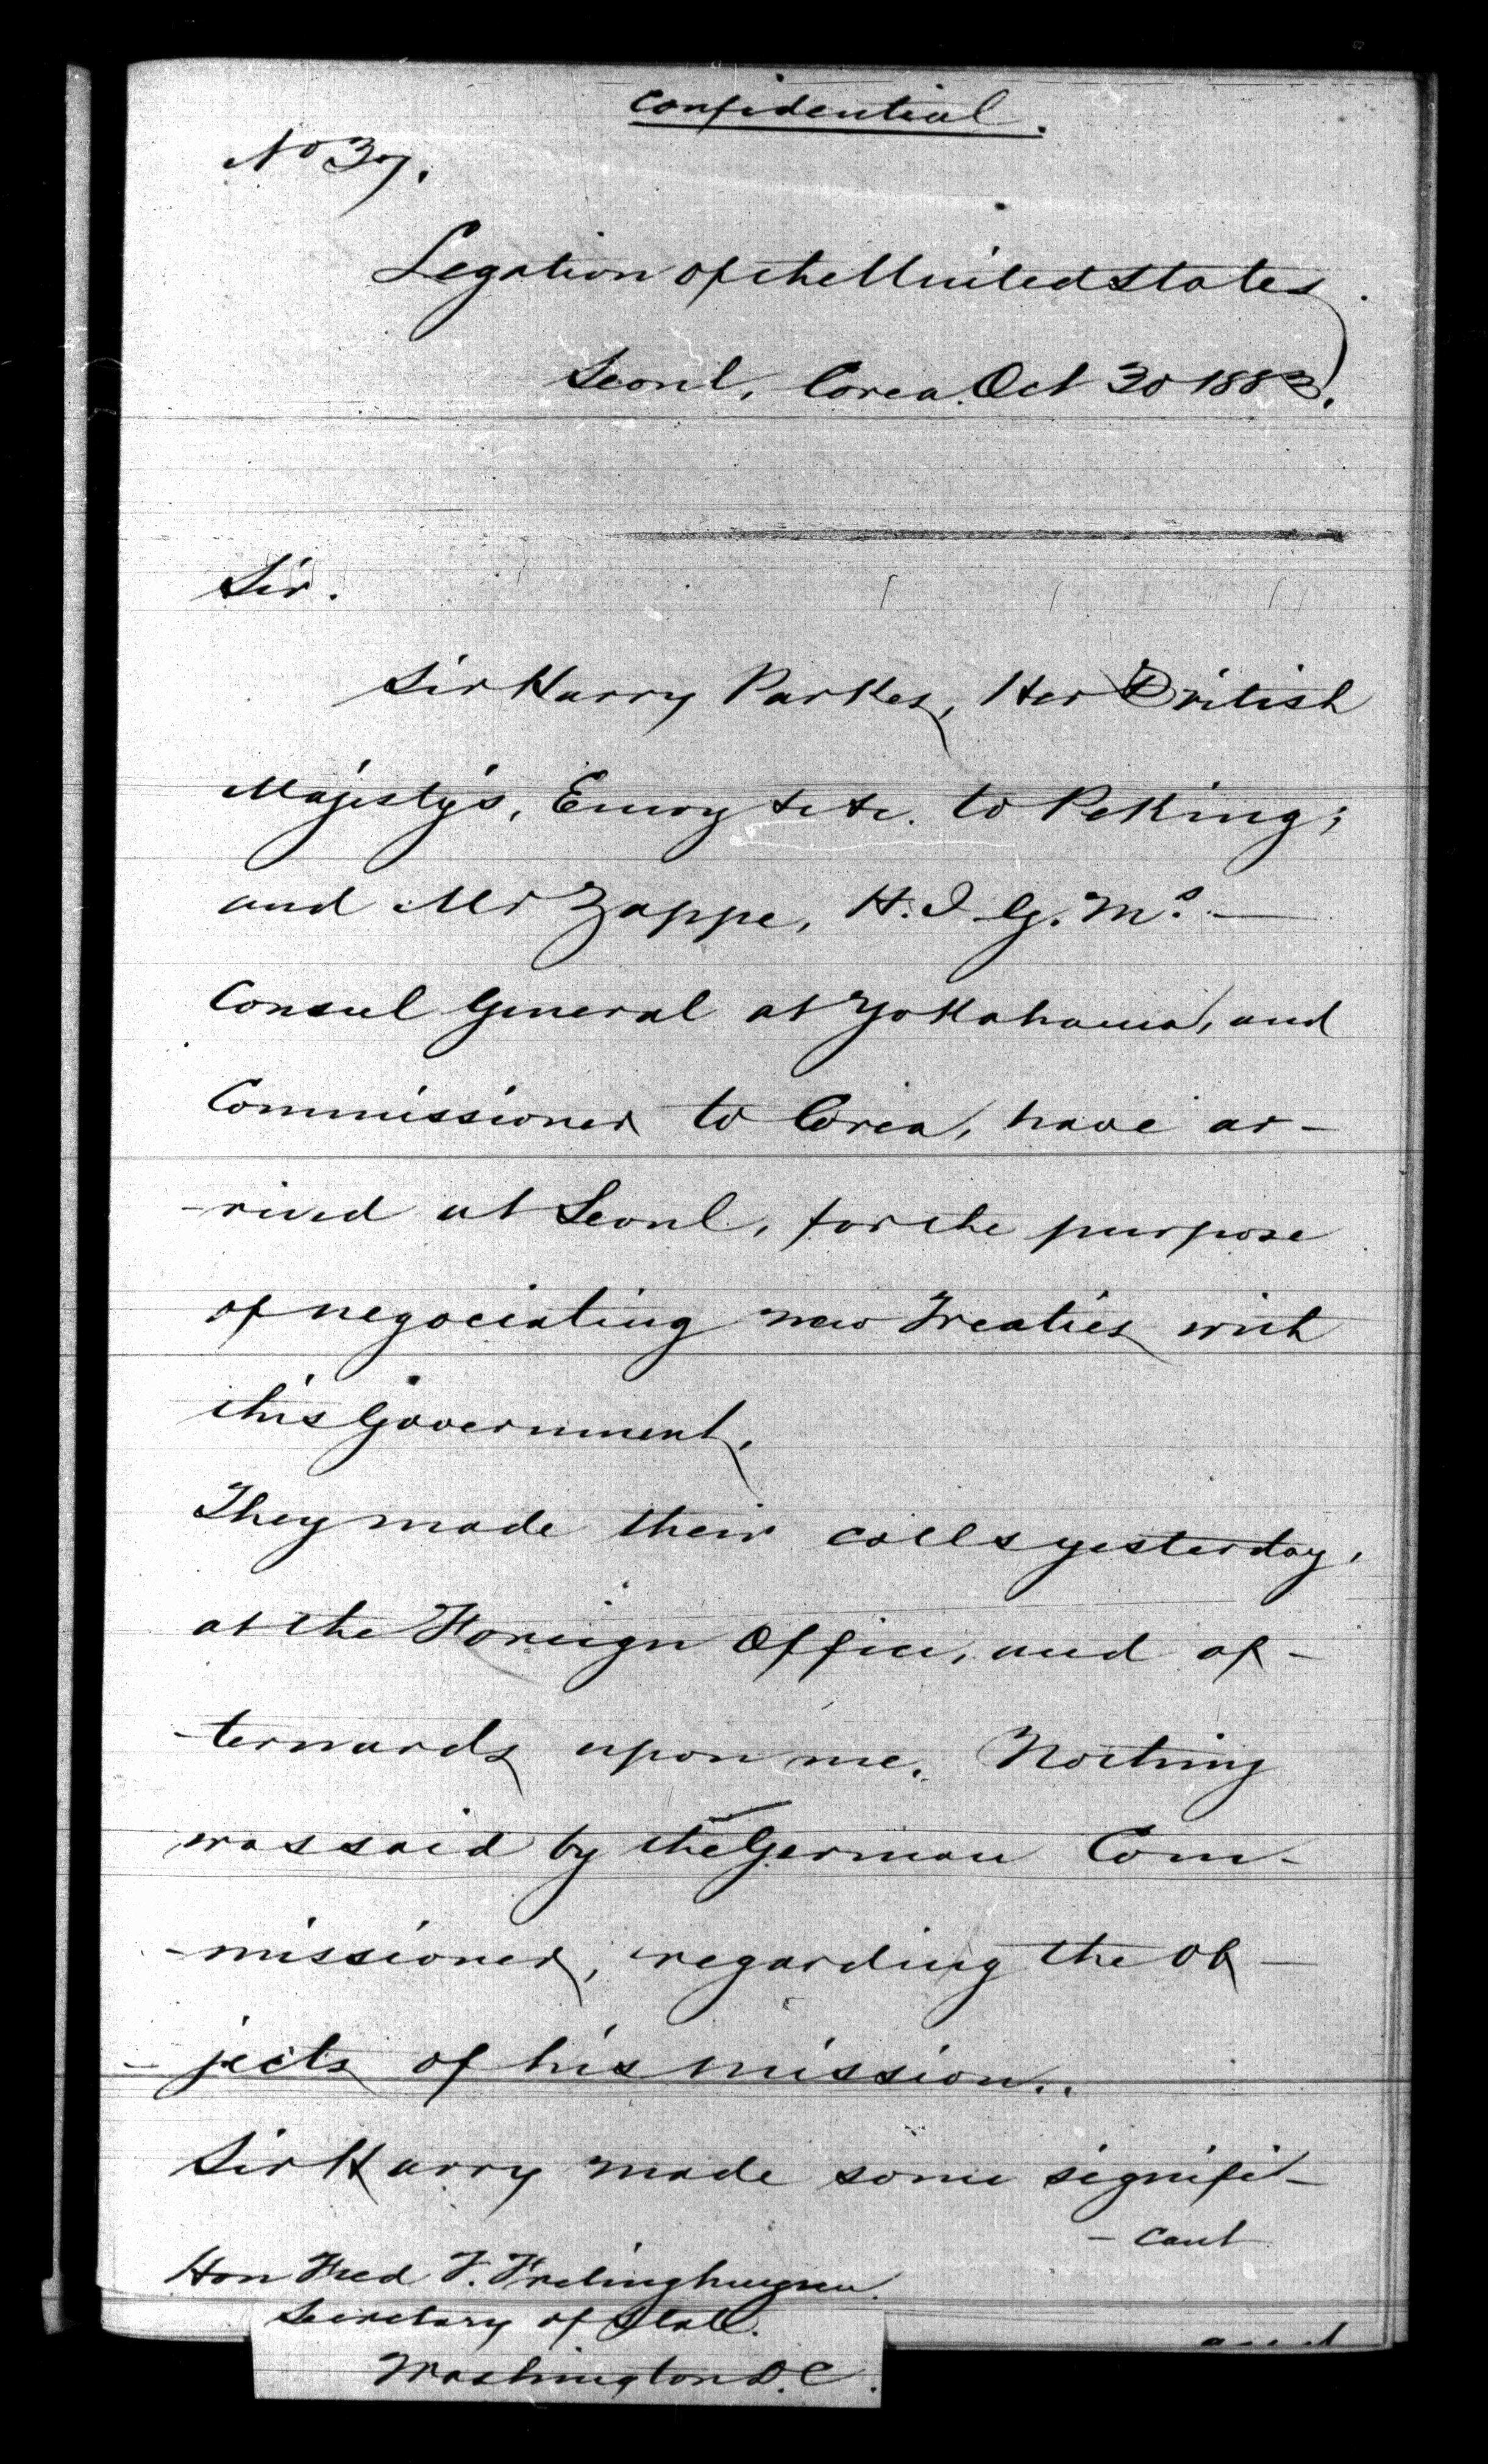 Confidential.
No 37.
Legation of the United States.
Seoul, Corea. Oct 30 1883.
Sir.
Sir Harry Parkes, Her British
Majesty's, Envoy &c &c. to Peking;
and Mr Zappe, H. I. G. Ms. —
Consul General at Yokahama, and
Commissioner to Corea, have ar-
-rived at Seoul, for the purpose
of negociating new Treaties with
this Government.
They made their calls yesterday,
at the Foreign Office, and af-
-terwards upon me. Nothing
was said by the German Com-
-missioner, regarding the ob-
-jects of his mission..
Sir Harry made some signifi-
-cant
Hon Fred F. Frelinghuysen
Secretary of State.
Washington D.C.